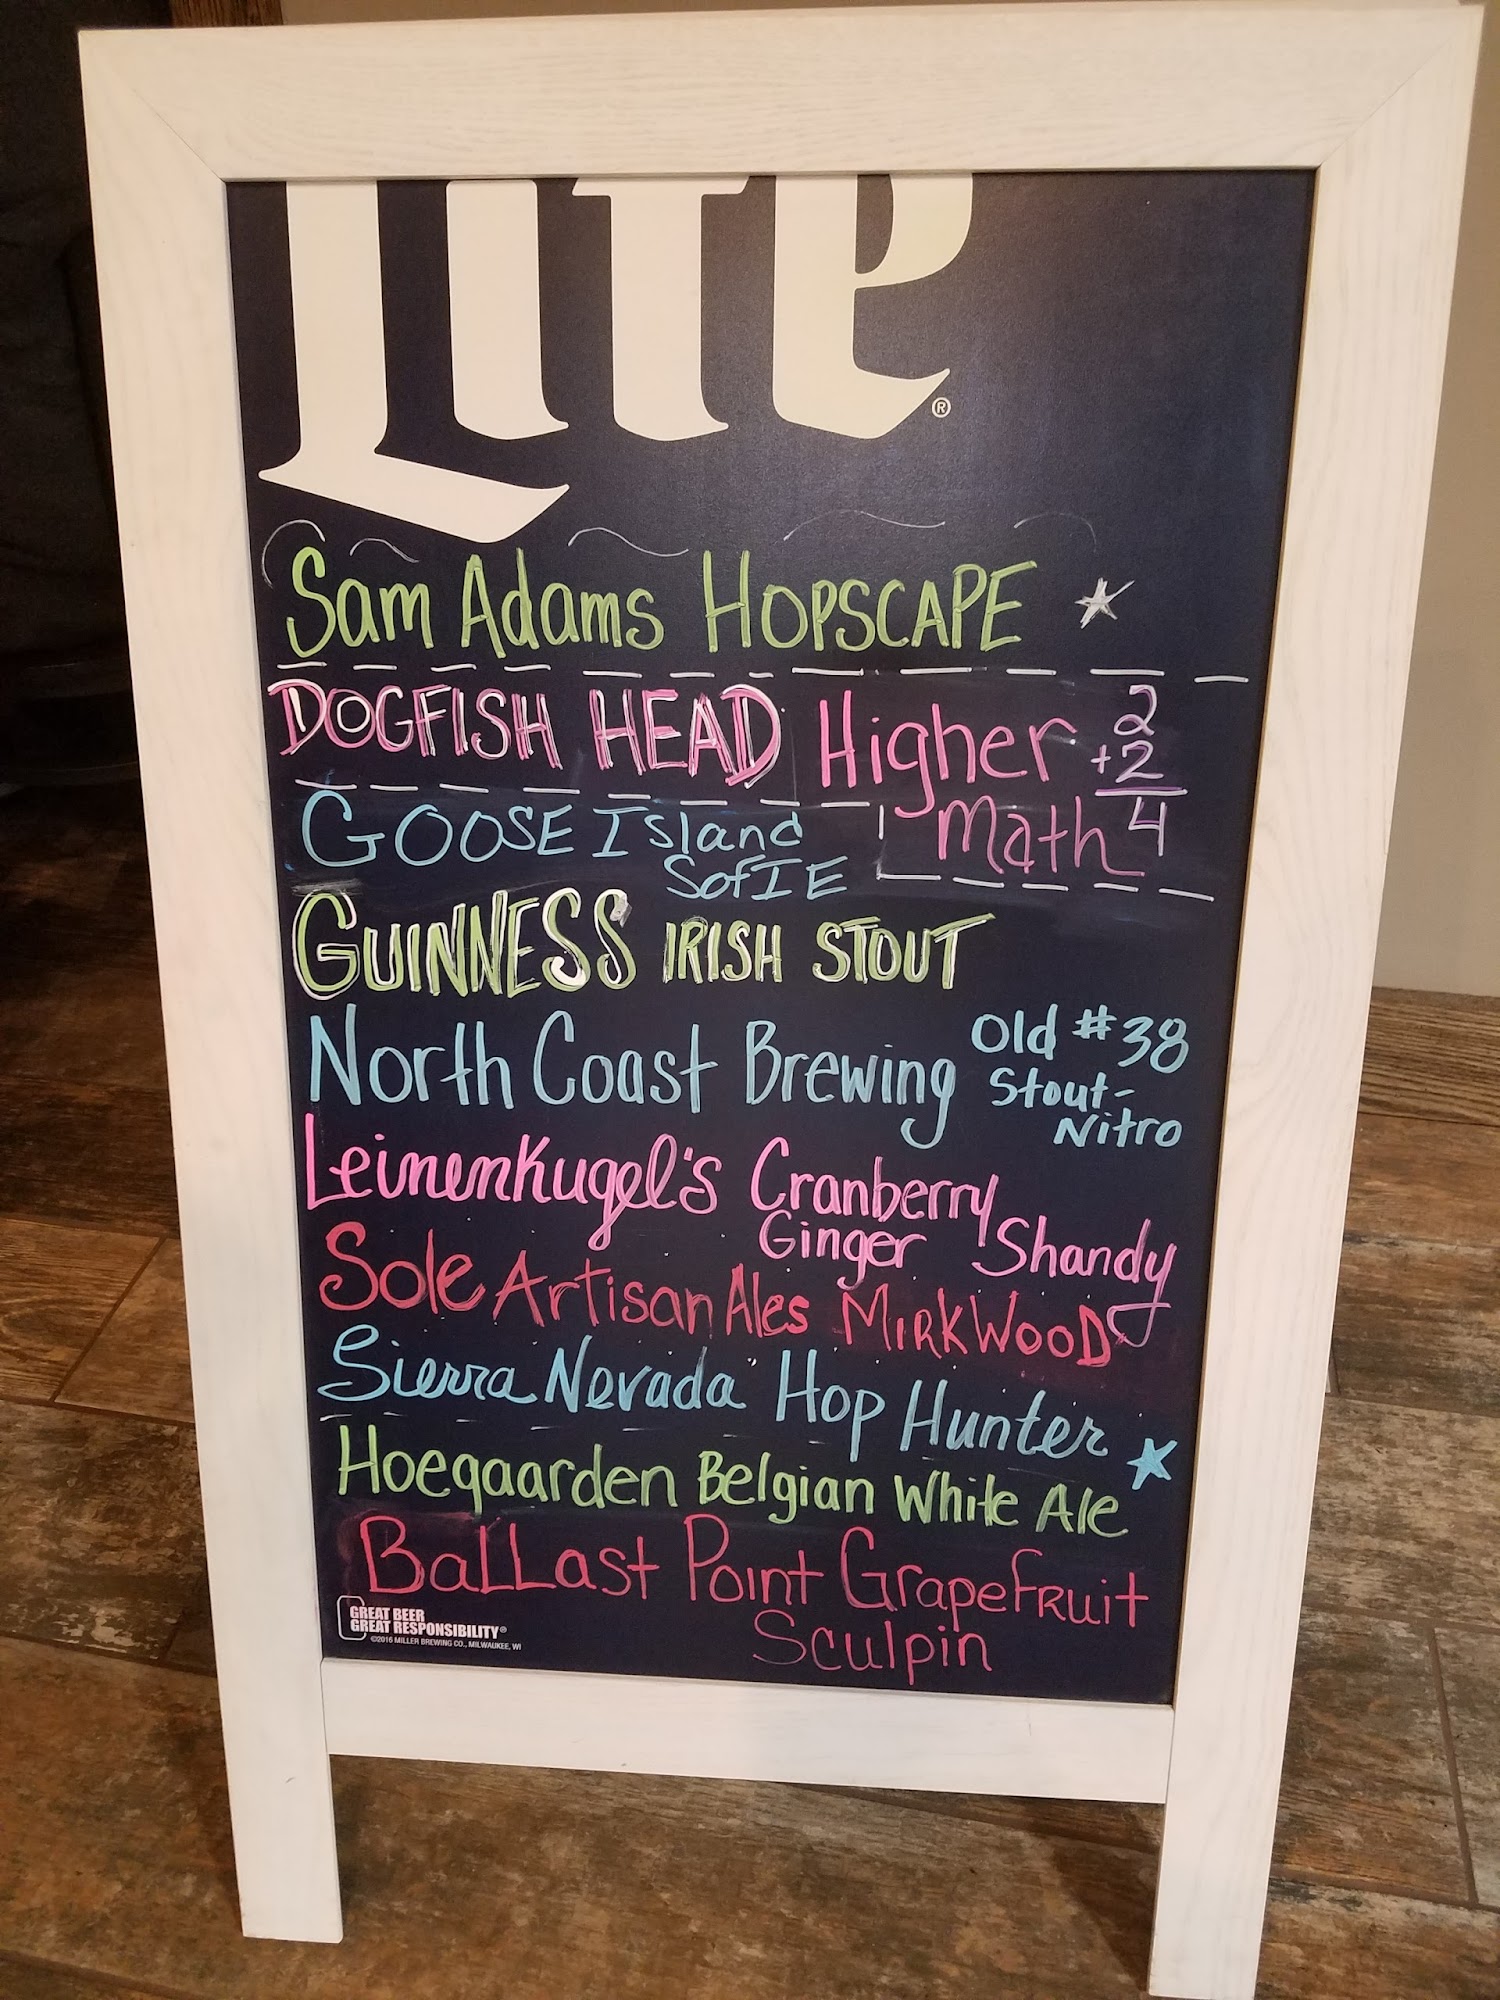 Lite®
Sam Adams HOPSCAPE
DOGFISH HEAD Higher
Math
2
+2
4
GOOSE Island
SofIE
GUINNESS IRISH STOUT
North Coast Brewing Old #38
Stout-
Nitro
Leinenkugel's Cranberry
Ginger Shandy
Sole Artisan Ales MIRKWOOD
Sierra Nevada Hop Hunter
Hoegaarden Belgian White Ale
BaLLast Point Grapefruit
Sculpin
GREAT BEER
GREAT RESPONSIBILITY®
©2016 MILLER BREWING CO., MILWAUKEE, WI